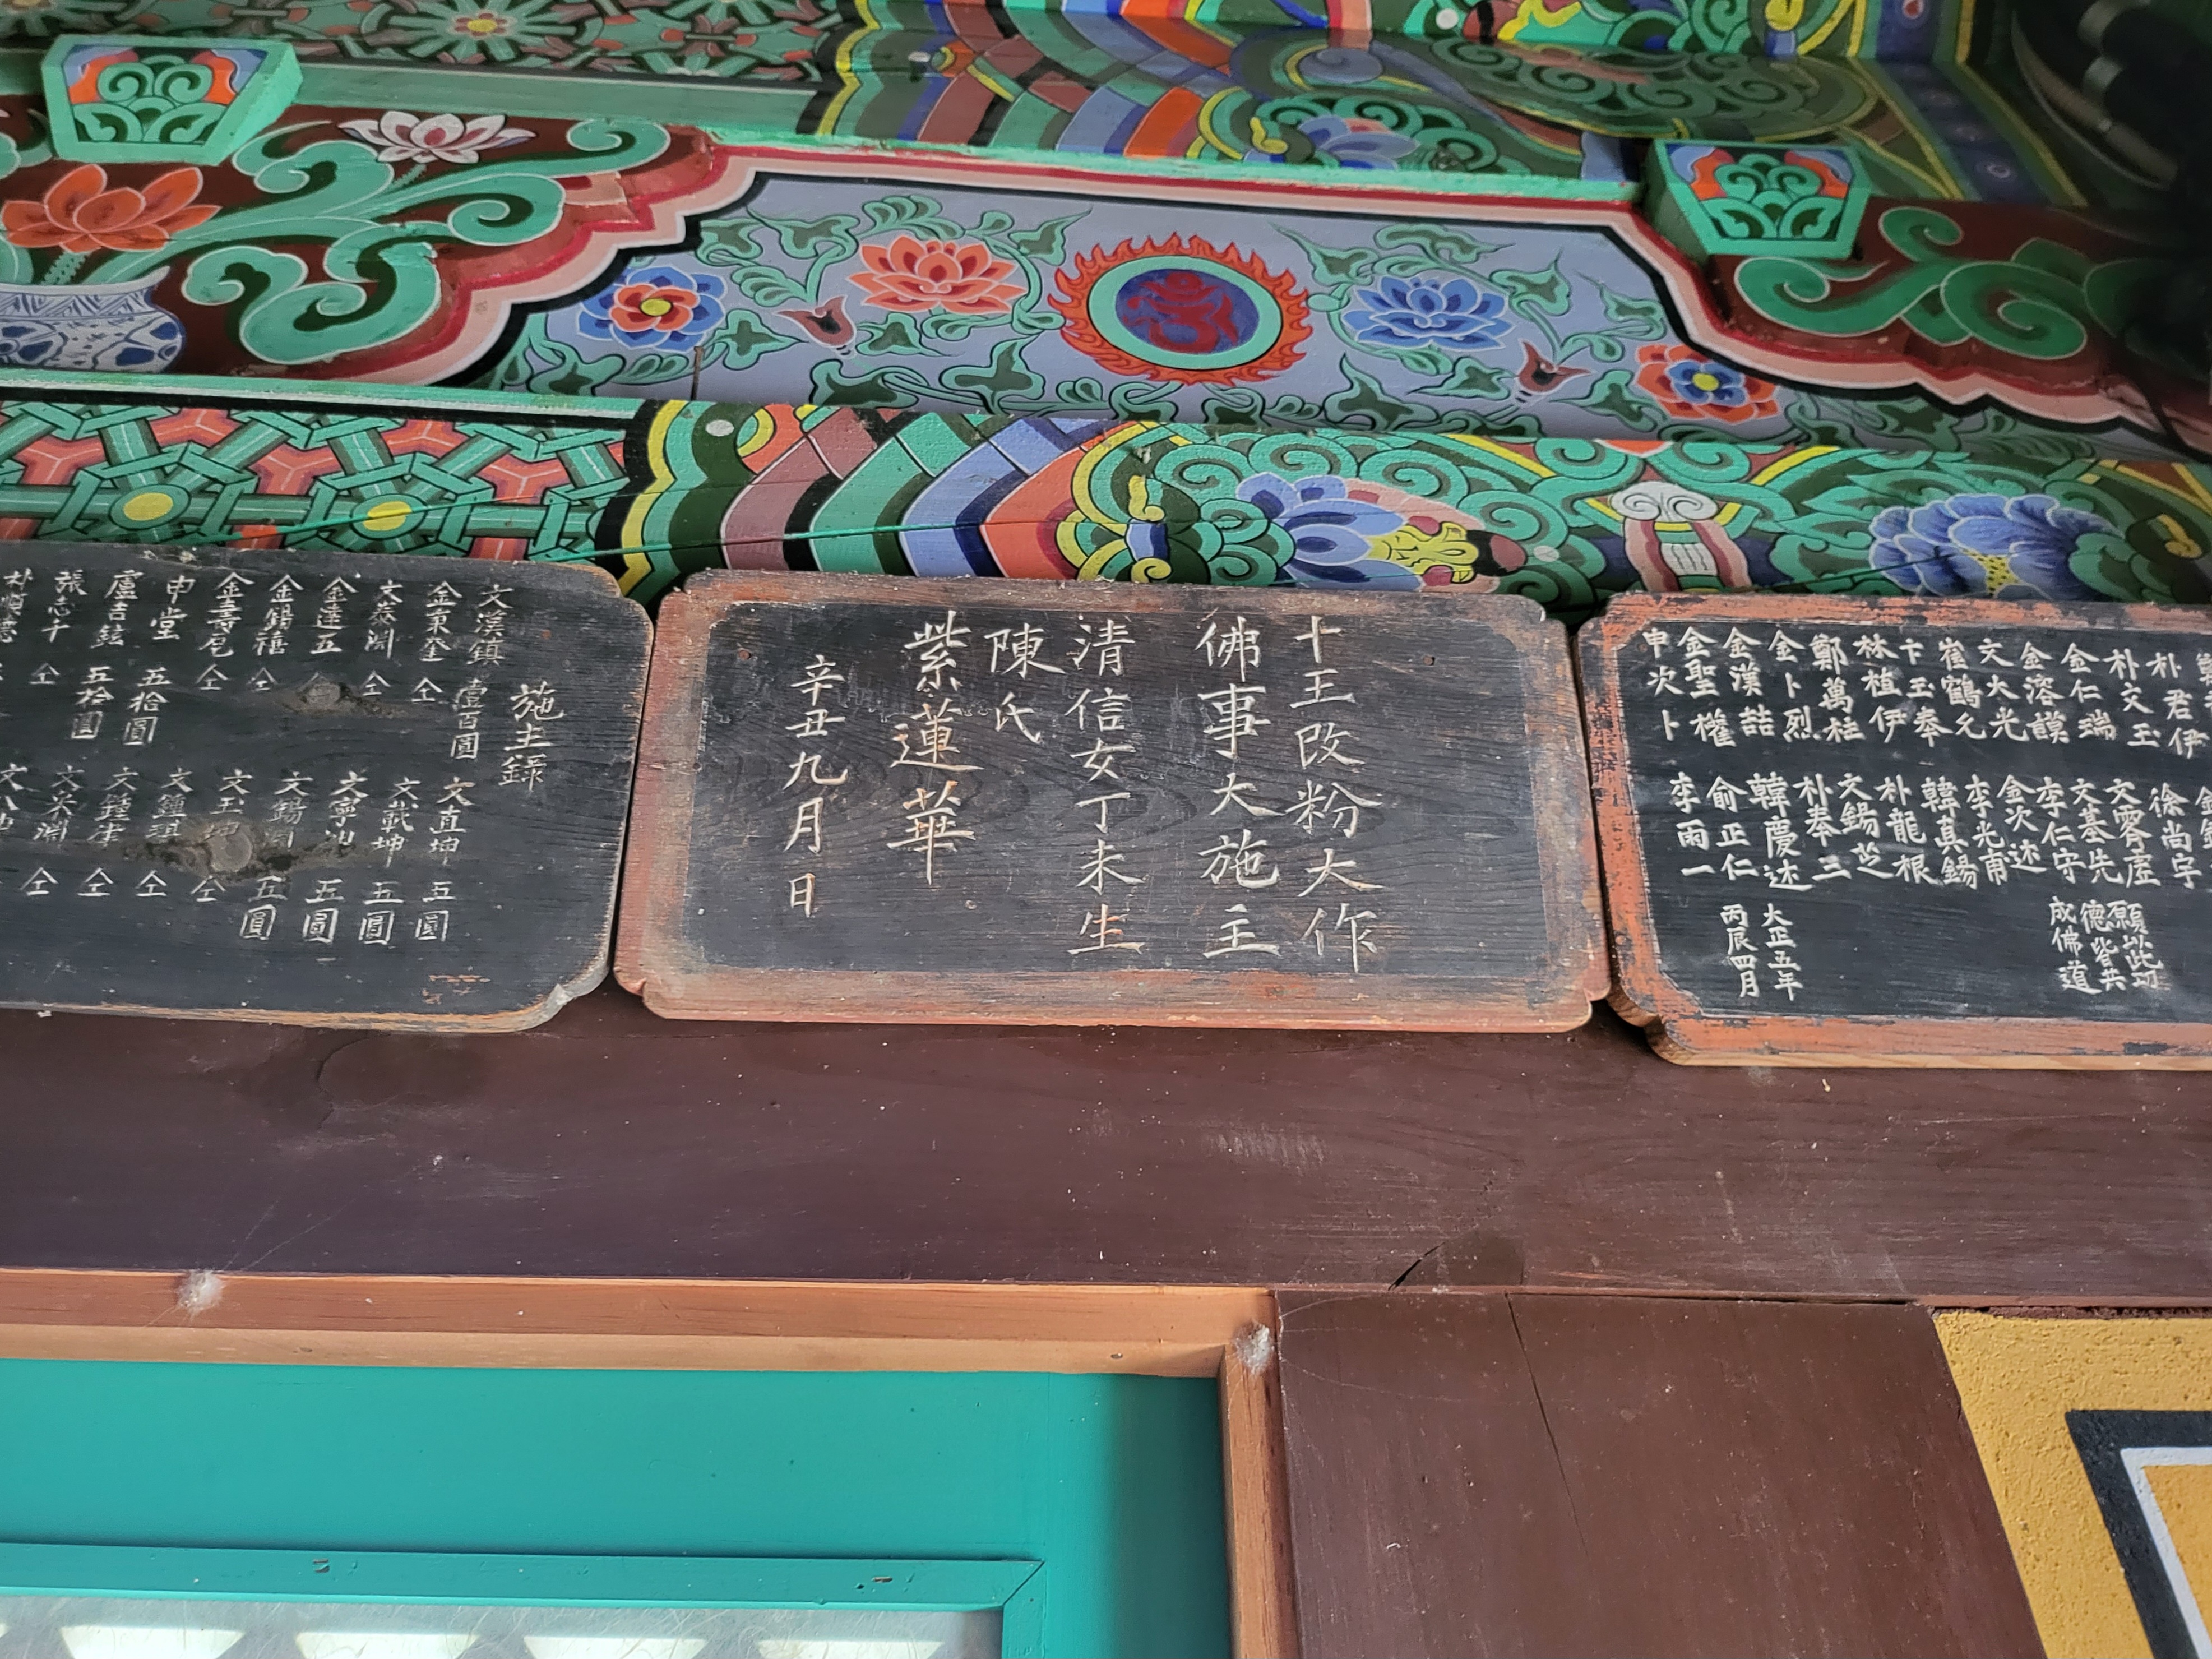 朴君伊
朴文玉
金仁瑞
金溶謨
文大光
崔鶴允
卞玉奉
林植伊
鄭萬柱
金卜烈
金漢喆
金聖權
申次卜
徐尚宇
文霽虛
文基先
李仁守
金次述
李光甫
韓真錫
朴龍根
文錫芝
朴奉三
韓慶述
俞正仁
李雨一
願以此功
德皆共
成佛道
大正五年
丙辰四月
十王改粉大作
佛事大施主
清信女丁未生
陳氏
紫蓮華
辛丑九月日
施主錄
文漢鎮 壹百圓
金東金 仝
文泰淵 仝
金達五
金錫禧 仝
金壽 仝
申堂 五拾圓
盧吉鉉 五拾圓
張志十 仝
文直坤 五圓
文載坤 五圓
文寧 五圓
文錫淵 五圓
文玉坤 仝
文鍾琪 仝
文鍾律 仝
文英淵 仝